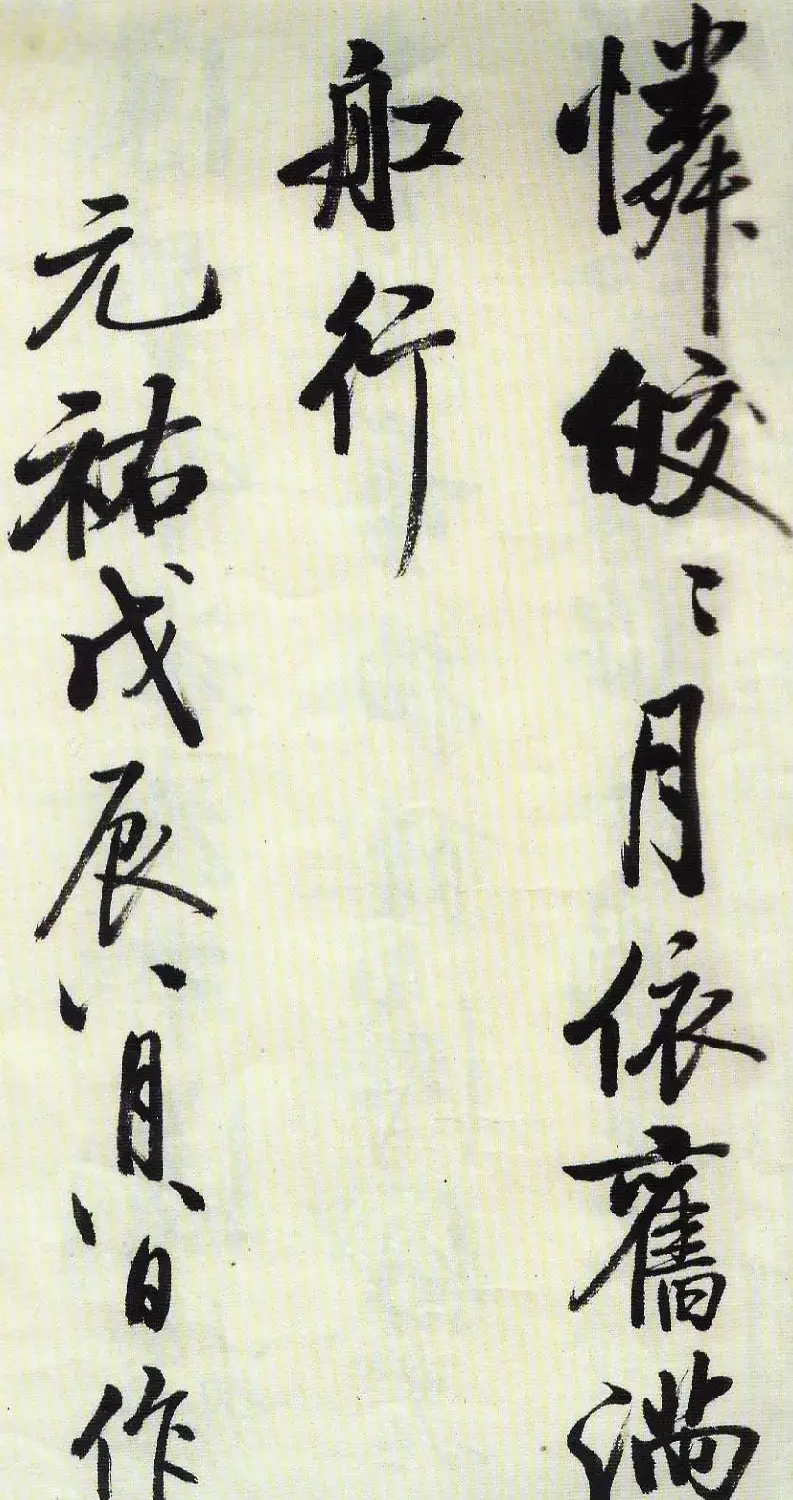 憐皎〻月依舊滿
舡行
元祐戊辰八月八日作